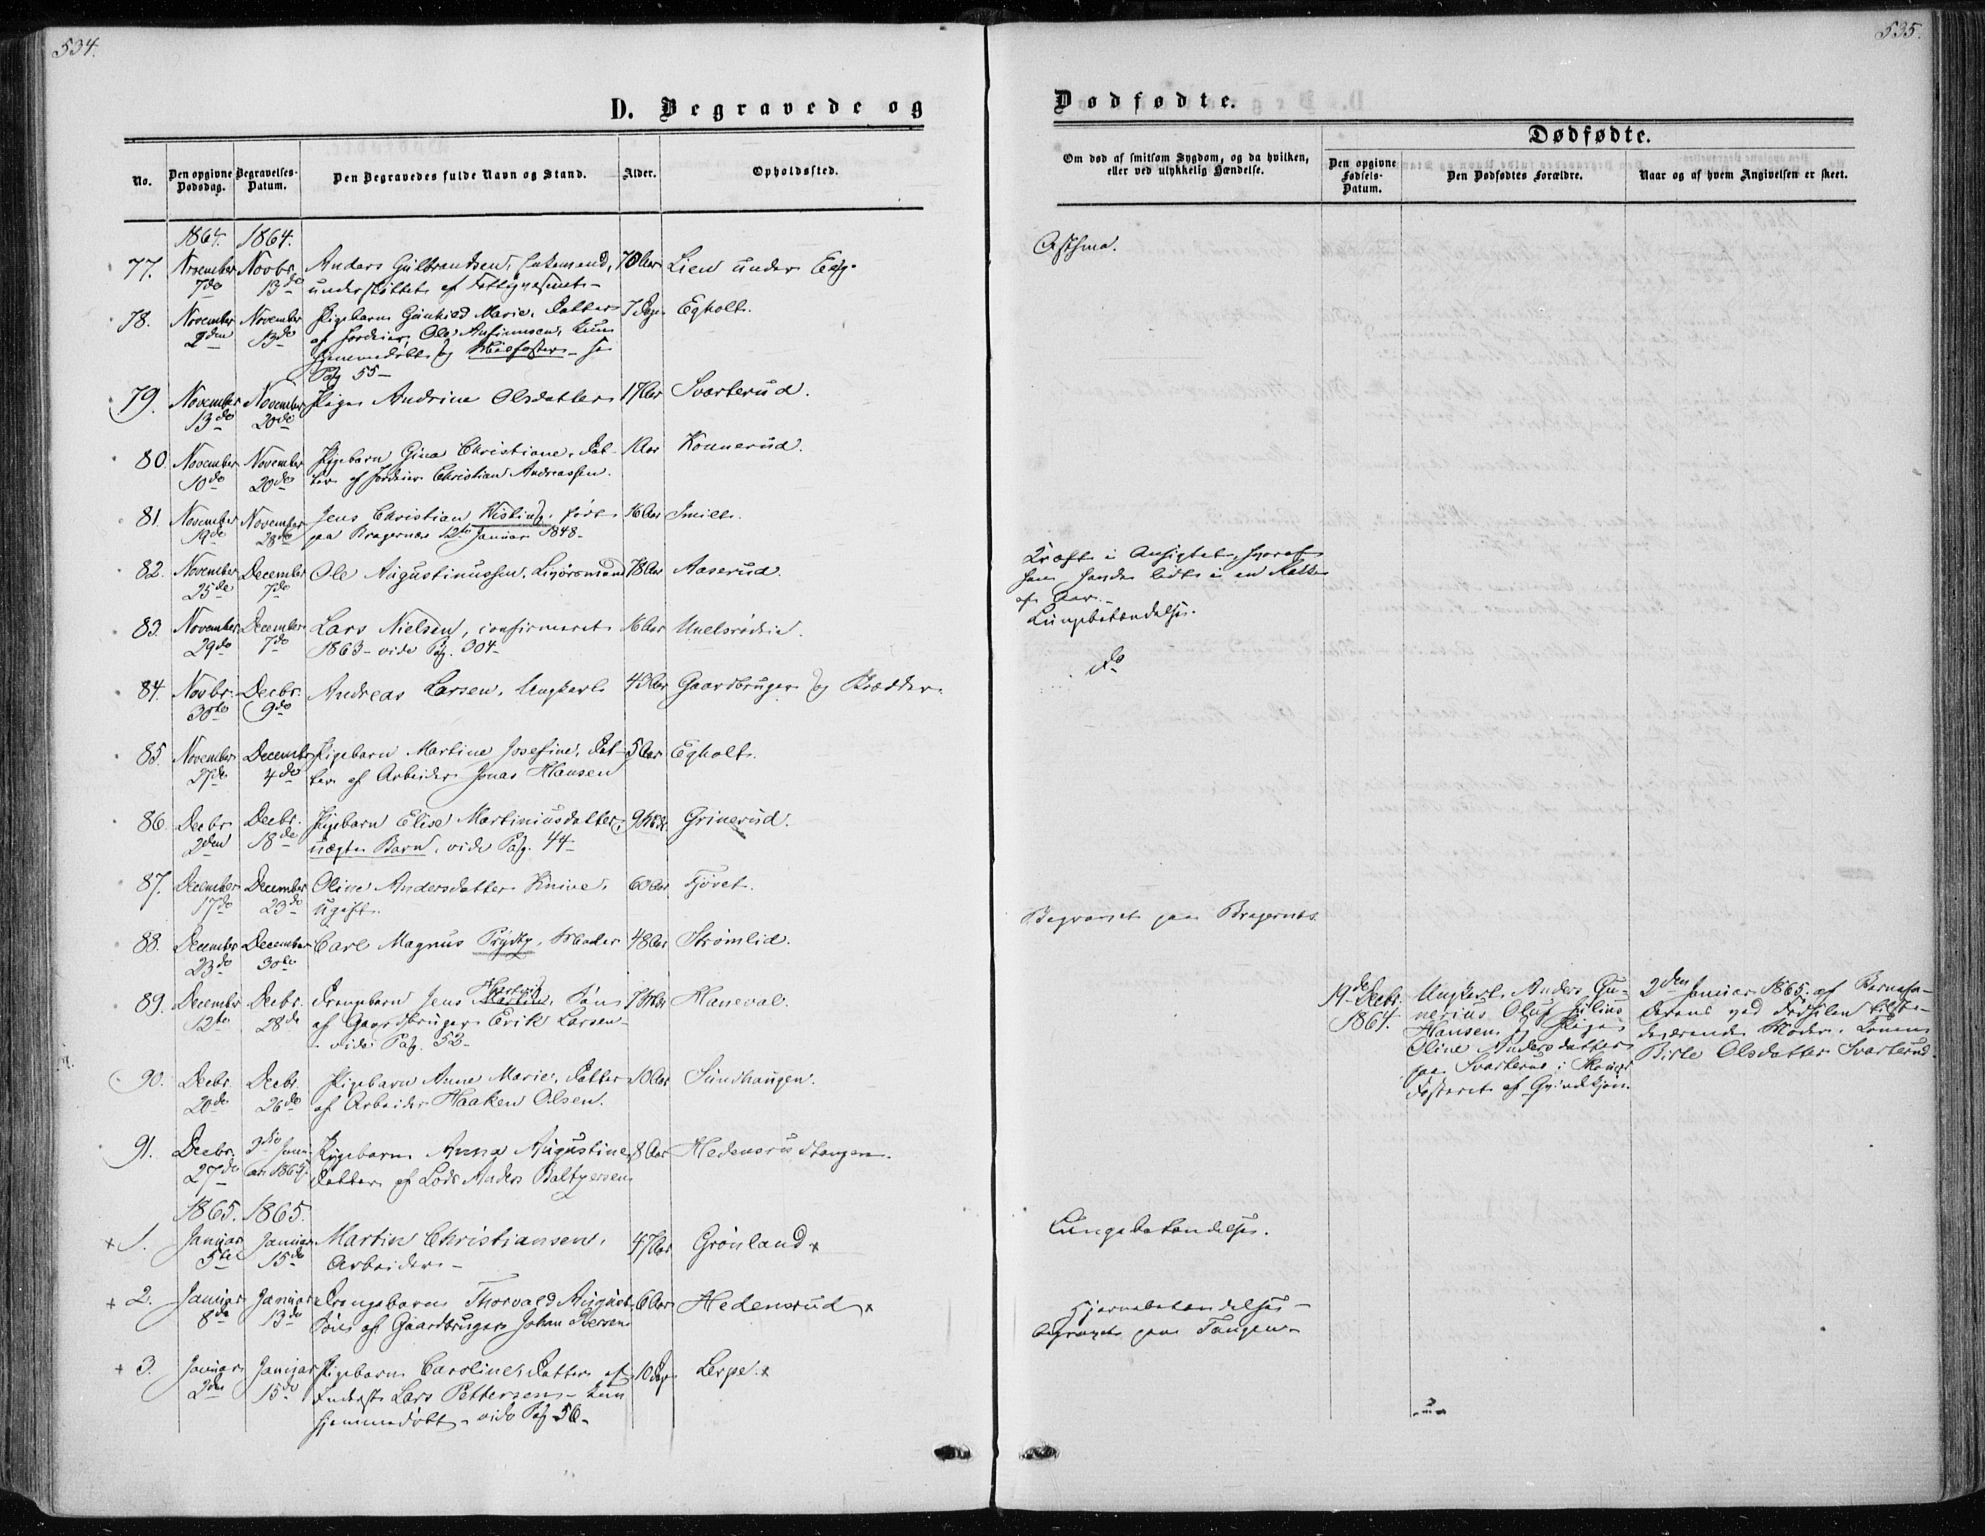 534.
D. Begravede og
No.
Den opgivne Dødsdag.
Begravelses-Datum.
Den Begravedes fulde Navn og Stand.
Alder.
Opholdssted.
1864. 1864.
77. November 7de Novbr. 13de Anders Gulbrandsen, 70 Aar Lien under
understøttet af Fattigvæsenet
78. November 2den November 13de Pigebarn Gunhild Marie, Datter 7 Dage Egholt.
af Ole
hjemmedøbt og
Pag 55
79. November 13de November 20de Pige Andrine Olsdatter 17 Aar Svarterud.
80. November 10de November 20de Pigebarn Gina Christiane, Dat- 1 Aar Konnerud.
ter af Christian Andreassen.
81. November 19de November 28de Jens Christian født 16 Aar Smidt.
paa Bragernæs 12te Januar 1848.
82. November 25de December 7de Ole Augustinussen, 78 Aar Aaserud.
83. November 29de December 7de Lars Nielsen, confirmeret 16 Aar
1863 vide Pag. 304
84. Novbr. 30te Decbr. 9de Andreas Larsen, Ungkarl 43 Aar Gaardbruger og
85. November 27de December 4de Pigebarn Martine Josefine, Dat- 5 Aar Egholt.
ter af Arbeider Jonas Hansen
86. Decbr. 2den Decbr. 18de Pigebarn Elise Martiniusdatter, 9 Grinerud.
uægte Barn, vide Pag. 44
87. December 17de December 23de Oline Andersdatter Knive, 60 Aar Tjøvet.
ugift.
88. December 23de December 30te Carl Magnus 48 Aar Strømlid.
89. December 12te Decbr. 28de Drengebarn Jens Søn 7 Haneval.
af Gaardbruger Erik Larsen
vide Pag. 53
90. Decbr. 20de Decbr. 26de Pigebarn Anne Marie, Datter 10 Aar Sundhaugen.
af Arbeider Haaken Olsen.
91. Decbr. 27de Pigebarn Anna Augustine 8 Aar Hedensrudtangen.
Datter af Lods Anders Baltzersen
1865. 1865.
+ 1. Januar 5te Januar 15de Martin Christiansen, 47 Aar Grønland +
Arbeider
+ 2. Januar 8de Januar 13de Drengebarn Thorvald August 6 Aar Hedensrud +
Søn af Gaardbruger Johan Iversen
+ 3. Januar 2den Januar 15de Pigebarn Caroline, Datter af 10 Dage Lerpe. +
Inderst Lars Pettersen kun
hjemmedøbt vide Pag 56
535.
Dødfødte.
Om død af smitsom Sygdom, og da hvilken,
eller ved ulykkelig Hændelse.
Dødfødte.
Den opgivne Fødsels-Datum.
Den Dødfødtes Forældre.
Naar og af hvem Angivelsen er skeet.
Asthma.
Kræft i Ansigtet, hvoraf
han havde lidt i en Række
af Aar.
Lungebetændelse.
do
Begravet paa Bragernes.
19de Decbr. 1864.
Ungkarl Anders Gu-
nerius Oluf Julius
Hansen og Pige
Oline Andersdatter
paa Svarterud i Skouger
Fosteret af
2den Januar 1865 af Barnefa-
deren ved Fødselen tilste-
deværende Moder, Konen
Birte Olsdatter Svarterud.
Lungebetændelse.
Hjernebetændelse
begravet paa Tangen